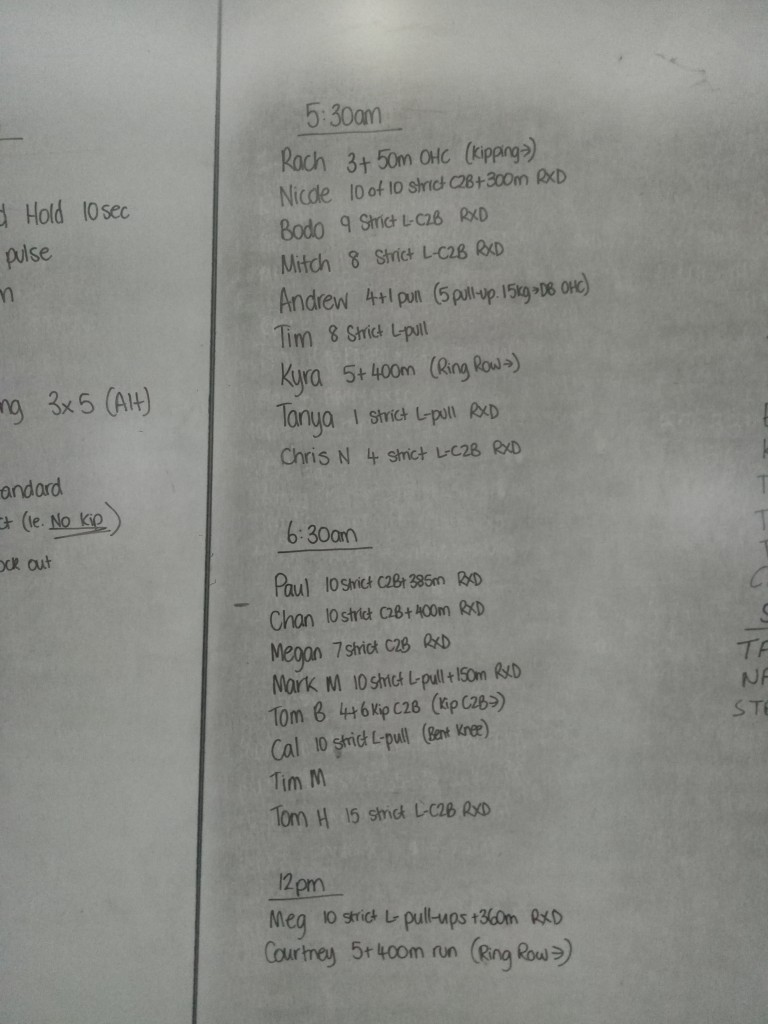 Hold 10sec
pulse
3x5 (Alt)
(ie. No Kip)
out
5:30am
Rach 3+ 50m OHC (Kipping→)
Nicole 10 of 10 strict C2B+300m RXD
Bodo 9 Strict L-C2B RXD
Mitch 8 Strict L-C2B RXD
Andrew 4+1 pull (5 pull-up. 15kg→DB OHC)
Tim 8 Strict L-pull
Kyra 5+400m (Ring Row→)
Tanya 1 strict L-pull RXD
Chris N 4 strict L-C2B RXD
6:30am
Paul 10 strict C2B+385m RXD
Chan 10 strict C2B+400m RXD
Megan 7 strict C2B RXD
Mark M 10 strict L-pull+150m RXD
Tom B 4+6 Kip C2B (Kip C2B→)
Cal 10 strict L-pull (Bent Knee)
Tim M
Tom H 15 strict L-C2B RXD
12pm
Meg 10 strict L-pull-ups +360m RXD
Courtney 5+ 400m run (Ring Row→)